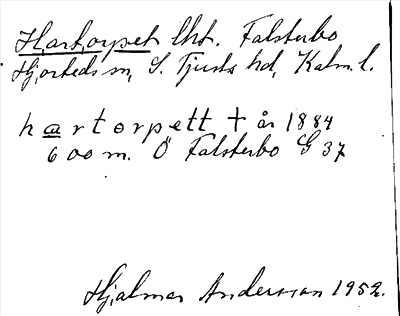 Hartorpet lht. Falsterbo
Hjorteds sn, S. Tjusts hd, Kalm. l.
hartorpett + år 1884
600 m. Ö Falsterbo G 37
Hjalmar Andersson 1952.